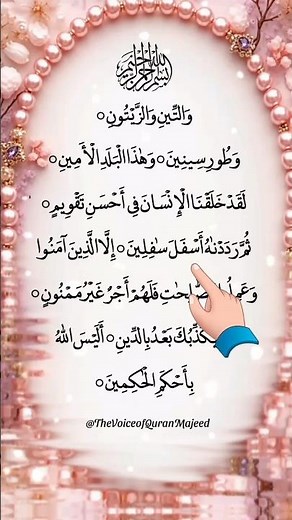 بسم الله الرحمن الرحيم
وَالتِّينِ وَالزَّيْتُونِ ○
وَطُورِ سِينِينَ ○ وَهٰذَا الْبَلَدِ الْأَمِينِ ○
لَقَدْ خَلَقْنَا الْإِنْسَانَ فِي أَحْسَنِ تَقْوِيمٍ ○
ثُمَّ رَدَدْنٰهُ أَسْفَلَ سٰفِلِينَ ○ إِلَّا الَّذِينَ آمَنُوا
فَلَهُمْ أَجْرٌ غَيْرُ مَمْنُونٍ ○
بَعْدُ بِالدِّينِ ○ أَلَيْسَ اللهُ
بِأَحْكَمِ الْحٰكِمِينَ ○
@TheVoiceofQuranMajeed